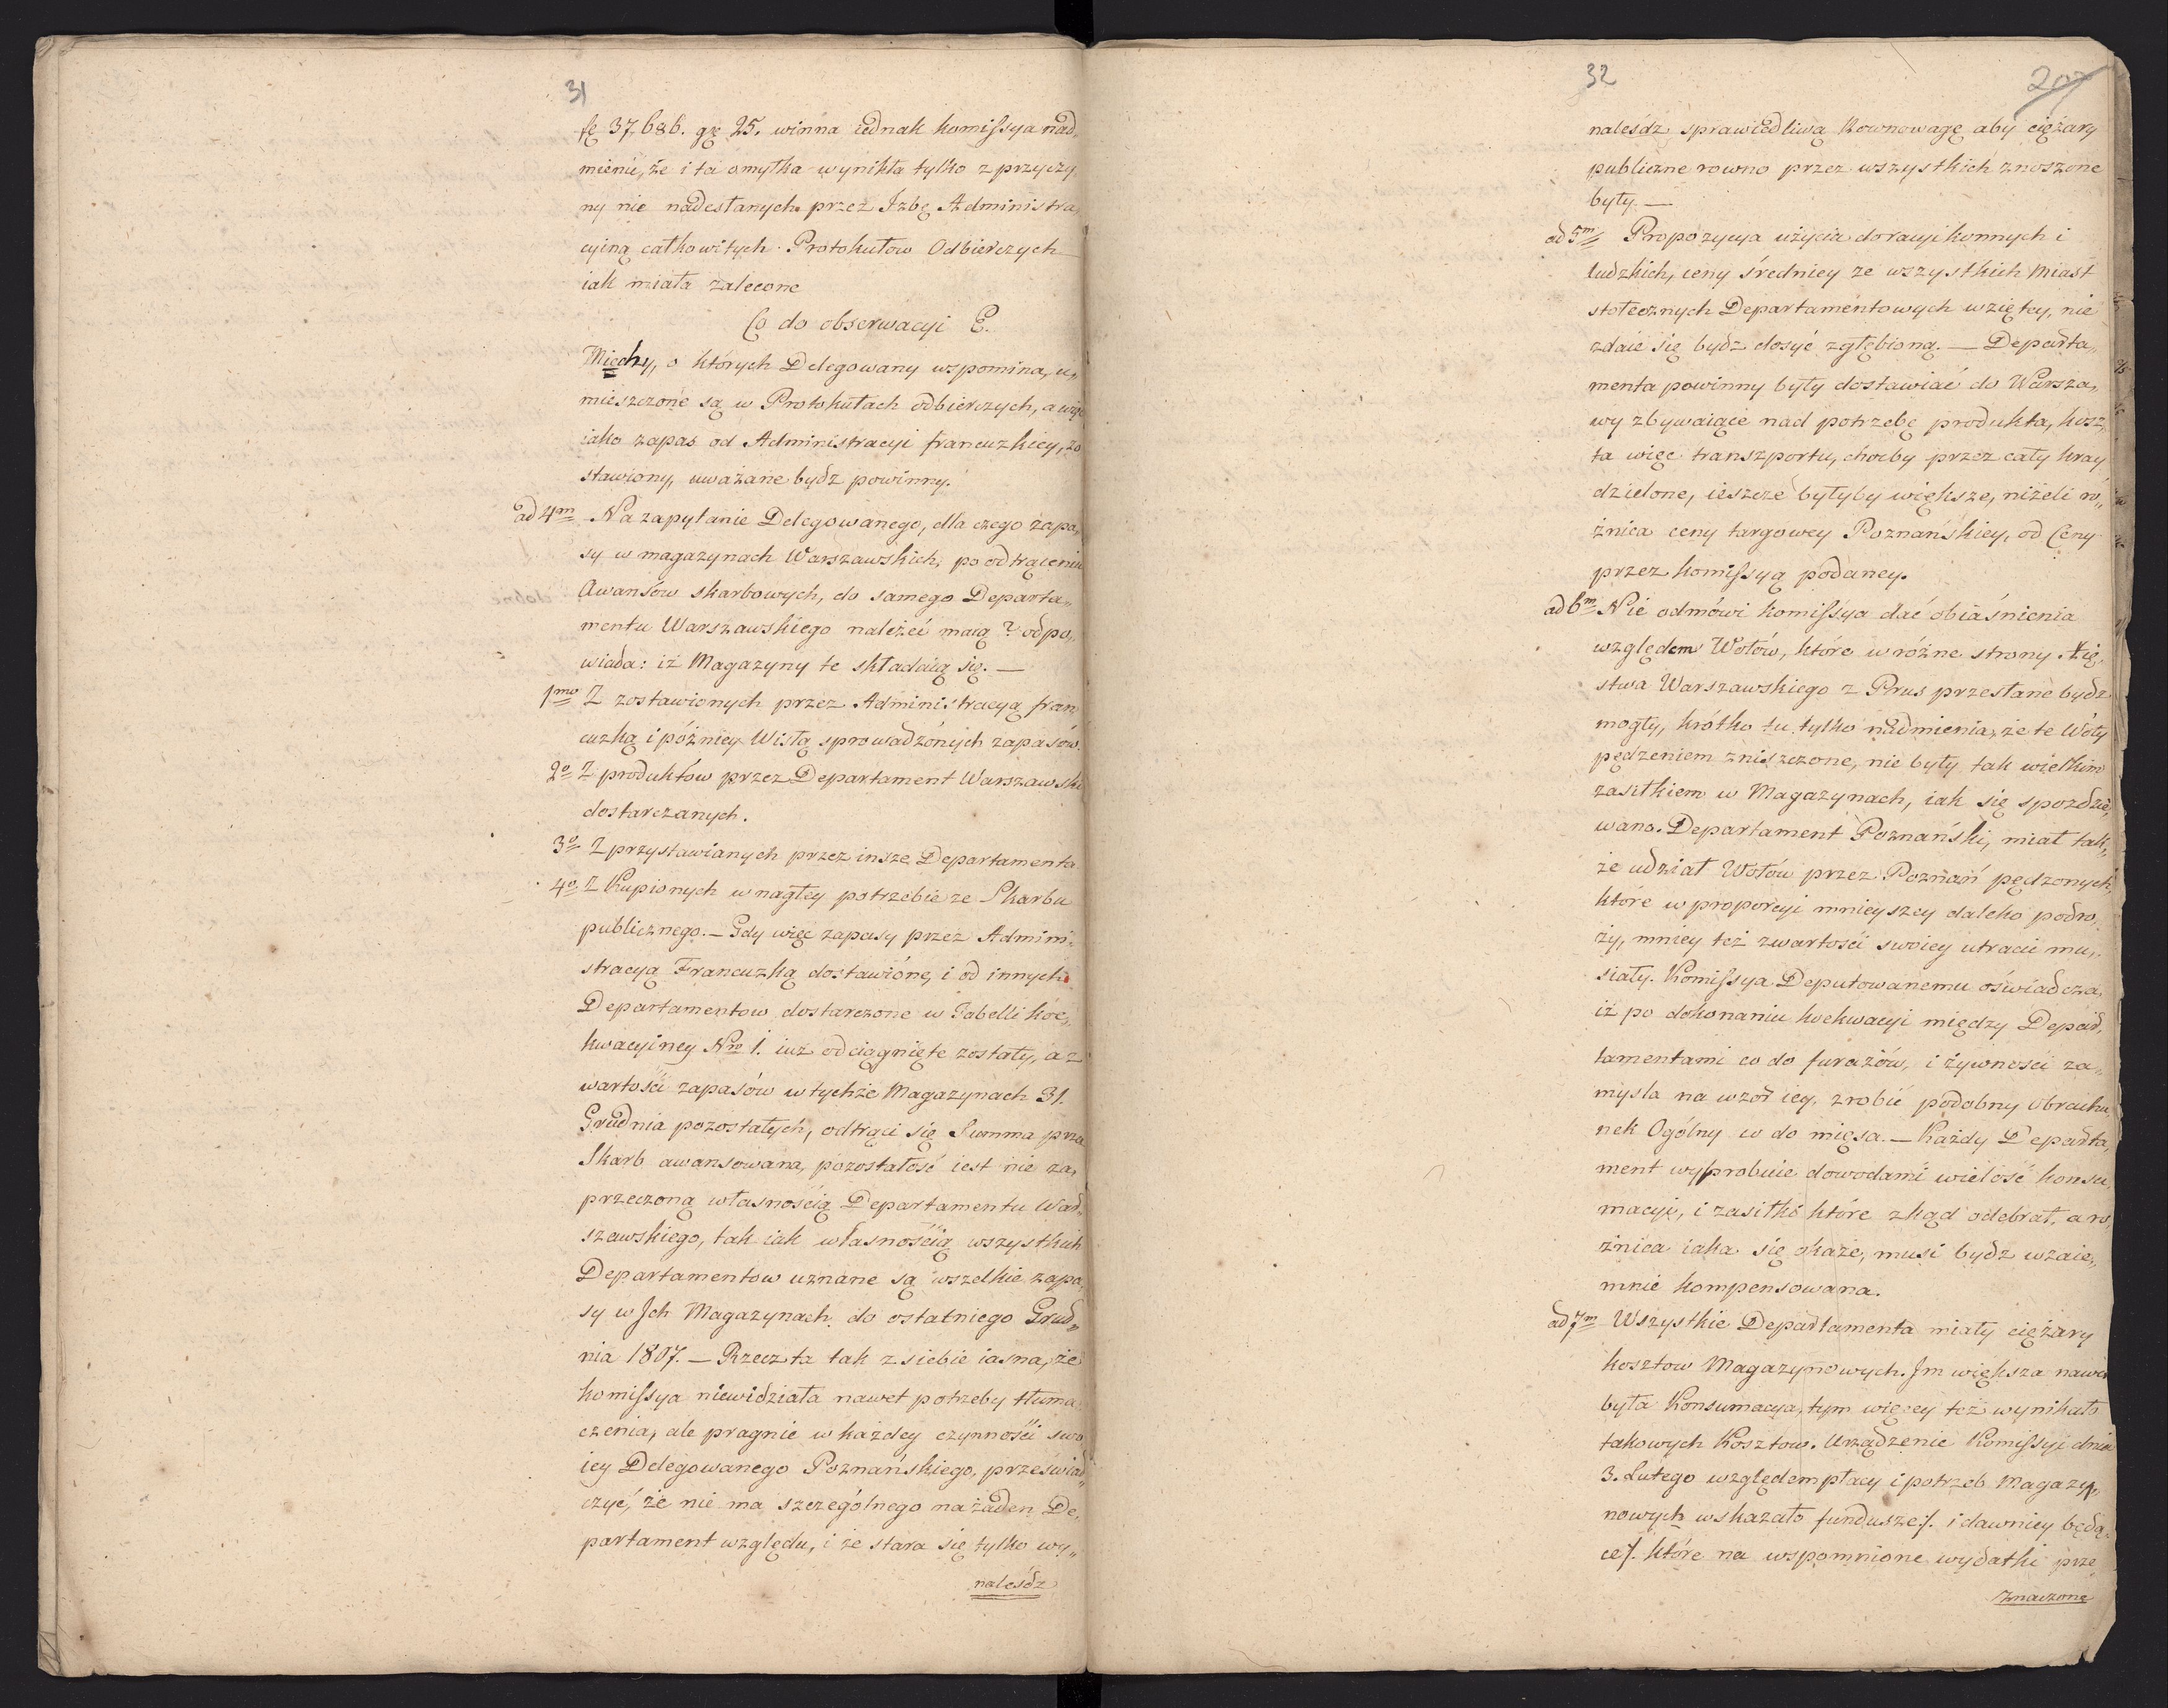 31
fl 37,686. gr 25. winna iednak komissya nad„
mienić, że i ta omyłka wynikła tylko z przyczy„
ny nie nadesłanych przez Izbę Administra„
cyiną całkowitych Protokułow Odbierczych
iak miała zalecone
Co do obserwacyi E.
Miechy, o których Delegowany wspomina, u„
mieszczone są w Protokułach odbierczych, a więc
iako zapas od Administracyi francuzkiey, zo
stawiony, uważane bydz powinny.
ad 4m Na zapytanie Delegowanego, dla czego zapa„
sy w magazynach Warszawskich, po odtrąceniu
Awansów skarbowych, do samego Departa„
mentu Warszawskiego należeć maią? odpo„
wiada: iż Magazyny te składaią się. —
1mo Z zostawionych przez Administracyą fran
cuzką i późniey Wisłą sprowadzónych zapasów.
2o Z produktów przez Departament Warszawski
dostarczanych.
3o Z przystawianych przez insze Departamenta
4o Z Kupionych w nagłey potrzebie ze Skarbu
publicznego. — Gdy więc zapasy przez Admini„
stracyą Francuzką dostawióne, i od innych
Departamentow dostarczone w Tabelli koe„
kwacyiney Nro 1. iuż odciągnięte zostały, a z
wartości zapasów w tychże Magazynach 31.
Grudnia pozostałych, odtrąci się Summa prze
Skarb awansowana, pozostałość iest nie za„
przeczoną własnością Departamentu War„
szawskiego, tak iak własnością wszystkich
Departamentow uznane są wszelkie zapa„
sy w Ich Magazynach do ostatniego Grud„
nia 1807. — Rzecz ta tak z siebie iasna, że
komissya niewidziała nawet potrzeby tłuma„
czenia, ale pragnie w każdey czynności swo
iey Delegowanego Poznańskiego, przeświad„
czyć, że nie ma szczególnego na żaden De„
partament względu, i że stara się tylko wy„
nalesdz
32
207
nalesdz sprawiedliwą Rownowagę aby ciężary
publiczne rowno przez wszystkich znoszone
były. —
ad 5m Propozycya użycia do racyi konnych i
ludzkich, ceny średniey ze wszystkich Miast
stołecznych Departamentowych wziętey, nie
zdaie się bydz dosyć zgłębioną. — Departa„
menta powinny były dostawiać do Warsza„
wy zbywaiące nad potrzebę produkta, kosz„
ta więc transzportu, choćby przez cały kray
dzielone, ieszcze byłyby większe, niżeli ró„
żnica ceny targowey Poznańskiey, od Ceny
przez komissyą podaney.
ad 6m Nie odmówi komissya dać obiaśnienia
względem Wołów, które w różne strony Xię„
stwa Warszawskiego z Prus przesłane bydz
mogły, krótko tu tylko nadmienia, że te Woły
pędzeniem zniszczone, nie były tak wielkim
zasiłkiem w Magazynach, iak się spodzie„
wano. Departament Poznański, miał tak„
że udział Wołów przez Poznań pędzonych,
które w proporcyi mnieyszey daleko podro„
ży, mniey też z wartości swoiey utracić mu„
siały. Komissya Deputowanemu oświadcza,
iż po dokonaniu koekwacyi między Depar„
tamentami co do furażów, i żywności za„
mysla na wzór iey, zrobić podobny Obrachu„
nek Ogólny co do mięsa. — Każdy Departa„
ment wyprobuie dowodami wielość konsu„
macyi, i zasiłki które zkąd odebrał, a ró„
żnica iaka się okaże, musi bydz wzaie„
mnie kompensowana.
ad 7m Wszystkie Departamenta miały ciężary
kosztow Magazynowych. Im większa nawet
była Konsumacya, tym więcey też wynikało
takowych Kosztow. Urządzenie Komissyi dnia
3. Lutego względem płacy i potrzeb Magazy„
nowych wskazało fundusze /. i dawniey będą„
ce /. które na wspomnione wydatki prze
znaczone